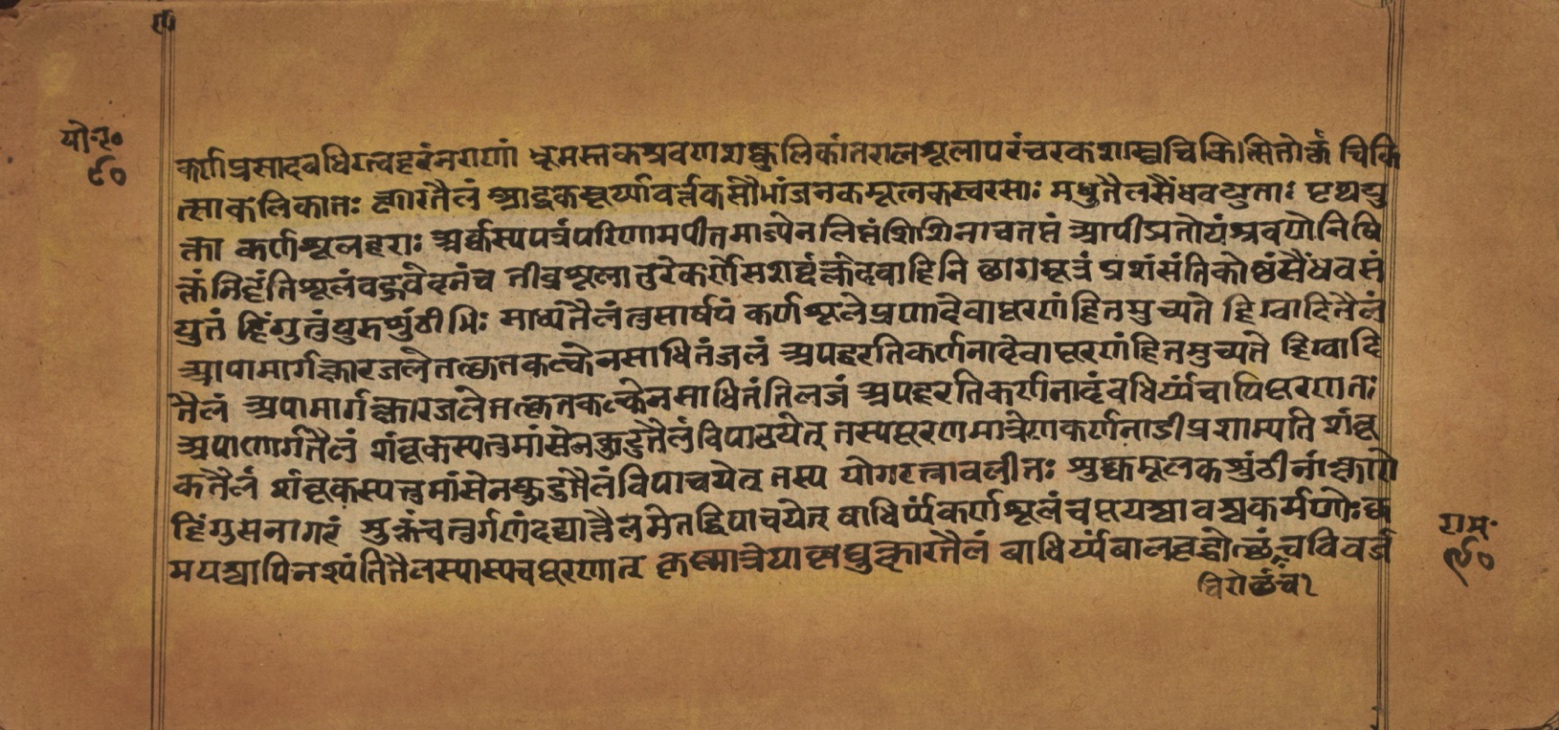 यो॰र॰
९०
कर्णप्रसादबधिरत्वहरंनराणां धूमस्तकश्रवणशष्कुलिकांतरालशूलापरंचरकशास्त्रचिकित्सितोक्तं चिकि
त्साकलिकातः क्षारतैलं आर्द्रकसूर्य्यावर्त्तकसौभांजनकमूलकस्वरसाः मधुतैलसैंधवयुताः पृथगु
क्ता कर्णशूलहराः अर्कस्यपत्रंपरिणामपीतमाज्येनलिप्तंशिखिनाचतप्तं आपीडयतोयंश्रवणेनिषि
क्तंनिहंतिशूलंबहुवेदनंच तीव्रशूलातुरेकर्णेसशब्दंक्लेदवाहिनि छागमूत्रं प्रशंसंतिकोष्णंसैंधवसं
युतं हिंगुतुंबुरुशुंठीभिः साध्यंतैलंतुसार्षपं कर्णशूलेप्रणादेवापूरणंहितमुच्यते हिंग्वादितैलं
अपामार्गक्षारजलेतत्कृतकल्केनसाधितंजलं अपहरतिकर्णनादेवापूरणंहितमुच्यते हिंग्वादि
तैलं अपामार्गक्षारजलेतत्कृतकल्केनसाधितंतिलजं अपहरतिकर्णनादंबधिर्य्यंचापिपूरणातः
अपामार्गतैलं शंबूकस्यतुमांसेनकटुतैलंविपाचयेत् तस्यपूरणमात्रेणकर्णनाडीप्रशाम्यति शंबू
कतैलं शंबूकस्यतुमांसेनकटुतैलंविपाचयेत् तस्य योगरत्नावलीतः शुष्कमूलकशुंठीनांक्षारो
हिंगुसनागरं शुक्तंचतुर्गुणंदद्यात्तैलमेतद्विपाचयेत् बाधिर्य्यंकर्णशूलंचपूयश्चावश्चकर्मणोःक
मयश्चापिनश्यंतितैलस्यास्यचपूरणात् कृष्णात्रेयाल्लघुक्षारतैलं बाधिर्य्यंबालवृद्धोत्थंचविवर्ज
चिरोत्थंच२
राम॰
९०